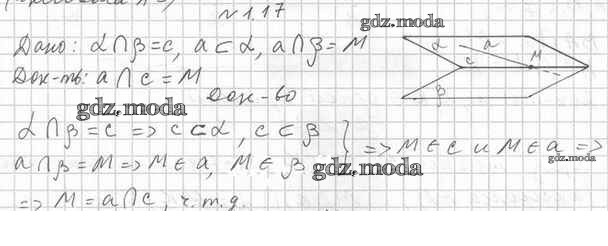 №1.17
gdz.moda
Дано: α∩β=c, a⊂α, a∩β=M
Док-ть: a∩c=M
gdz.moda
Док-во
α∩β=c => c⊂α, c⊂β
a∩β=M => M∈a, M∈β } => M∈c и M∈a =>
gdz.moda
gdz.moda
=> M=a∩c, ч.т.д.
α a M
c
β